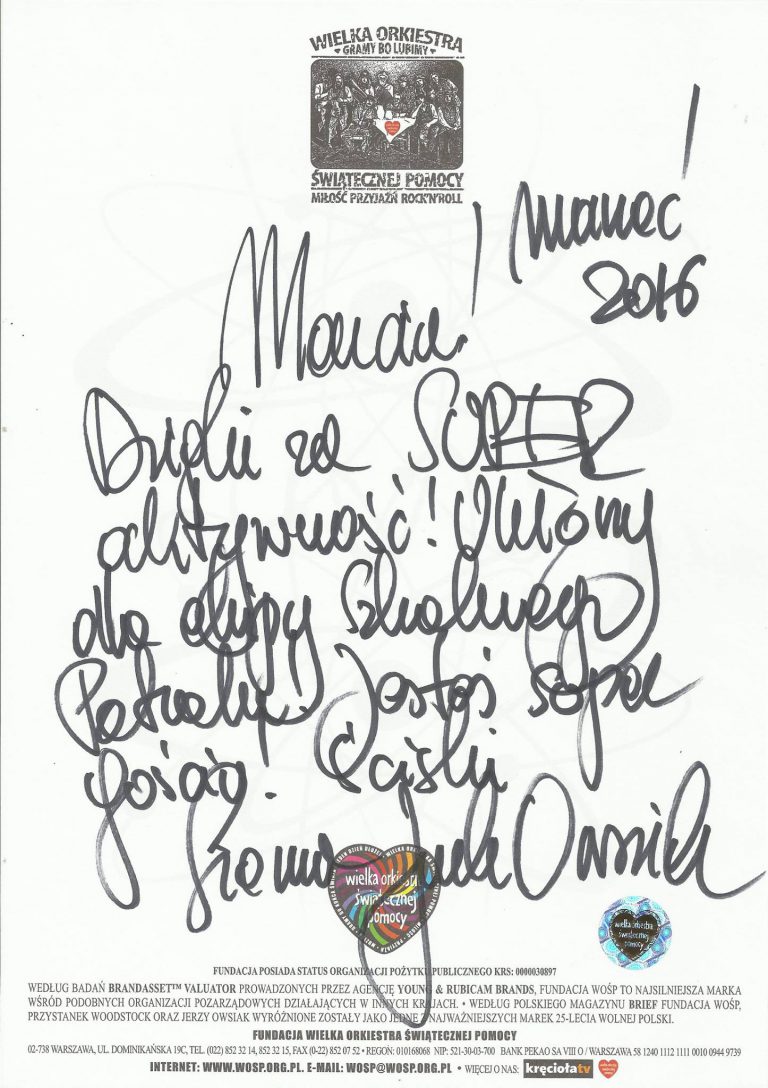 WIELKA ORKIESTRA
GRAMY BO LUBIMY
ŚWIĄTECZNEJ POMOCY
MIŁOŚĆ PRZYJAŹŃ ROCK'N'ROLL
marzec
2016
Marcin!
Dzięki za SUPER
aktywność! Ukłony
dla ekipy Szkolnego
Patrolu. Jesteś super
gość. Ściski
Siema Jurek Owsiak
wielka orkiestra
świątecznej
pomocy
wielka orkiestra
świątecznej
pomocy
FUNDACJA POSIADA STATUS ORGANIZACJI POŻYTKU PUBLICZNEGO KRS: 0000030897
WEDŁUG BADAŃ BRANDASSET™ VALUATOR PROWADZONYCH PRZEZ AGENCJĘ YOUNG & RUBICAM BRANDS, FUNDACJA WOŚP TO NAJSILNIEJSZA MARKA
WŚRÓD PODOBNYCH ORGANIZACJI POZARZĄDOWYCH DZIAŁAJĄCYCH W INNYCH KRAJACH. • WEDŁUG POLSKIEGO MAGAZYNU BRIEF FUNDACJA WOŚP,
PRZYSTANEK WOODSTOCK ORAZ JERZY OWSIAK WYRÓŻNIONE ZOSTAŁY JAKO JEDNE Z NAJWAŻNIEJSZYCH MAREK 25-LECIA WOLNEJ POLSKI.
FUNDACJA WIELKA ORKIESTRA ŚWIĄTECZNEJ POMOCY
02-738 WARSZAWA, UL. DOMINIKAŃSKA 19C, TEL. (022) 852 32 14, 852 32 15, FAX (0-22) 852 07 52 • REGON: 010168068 NIP: 521-30-03-700 BANK PEKAO SA VIII O / WARSZAWA 58 1240 1112 1111 0010 0944 9739
INTERNET: WWW.WOSP.ORG.PL. E-MAIL: WOSP@WOSP.ORG.PL • WIĘCEJ O NAS: kręciołatv